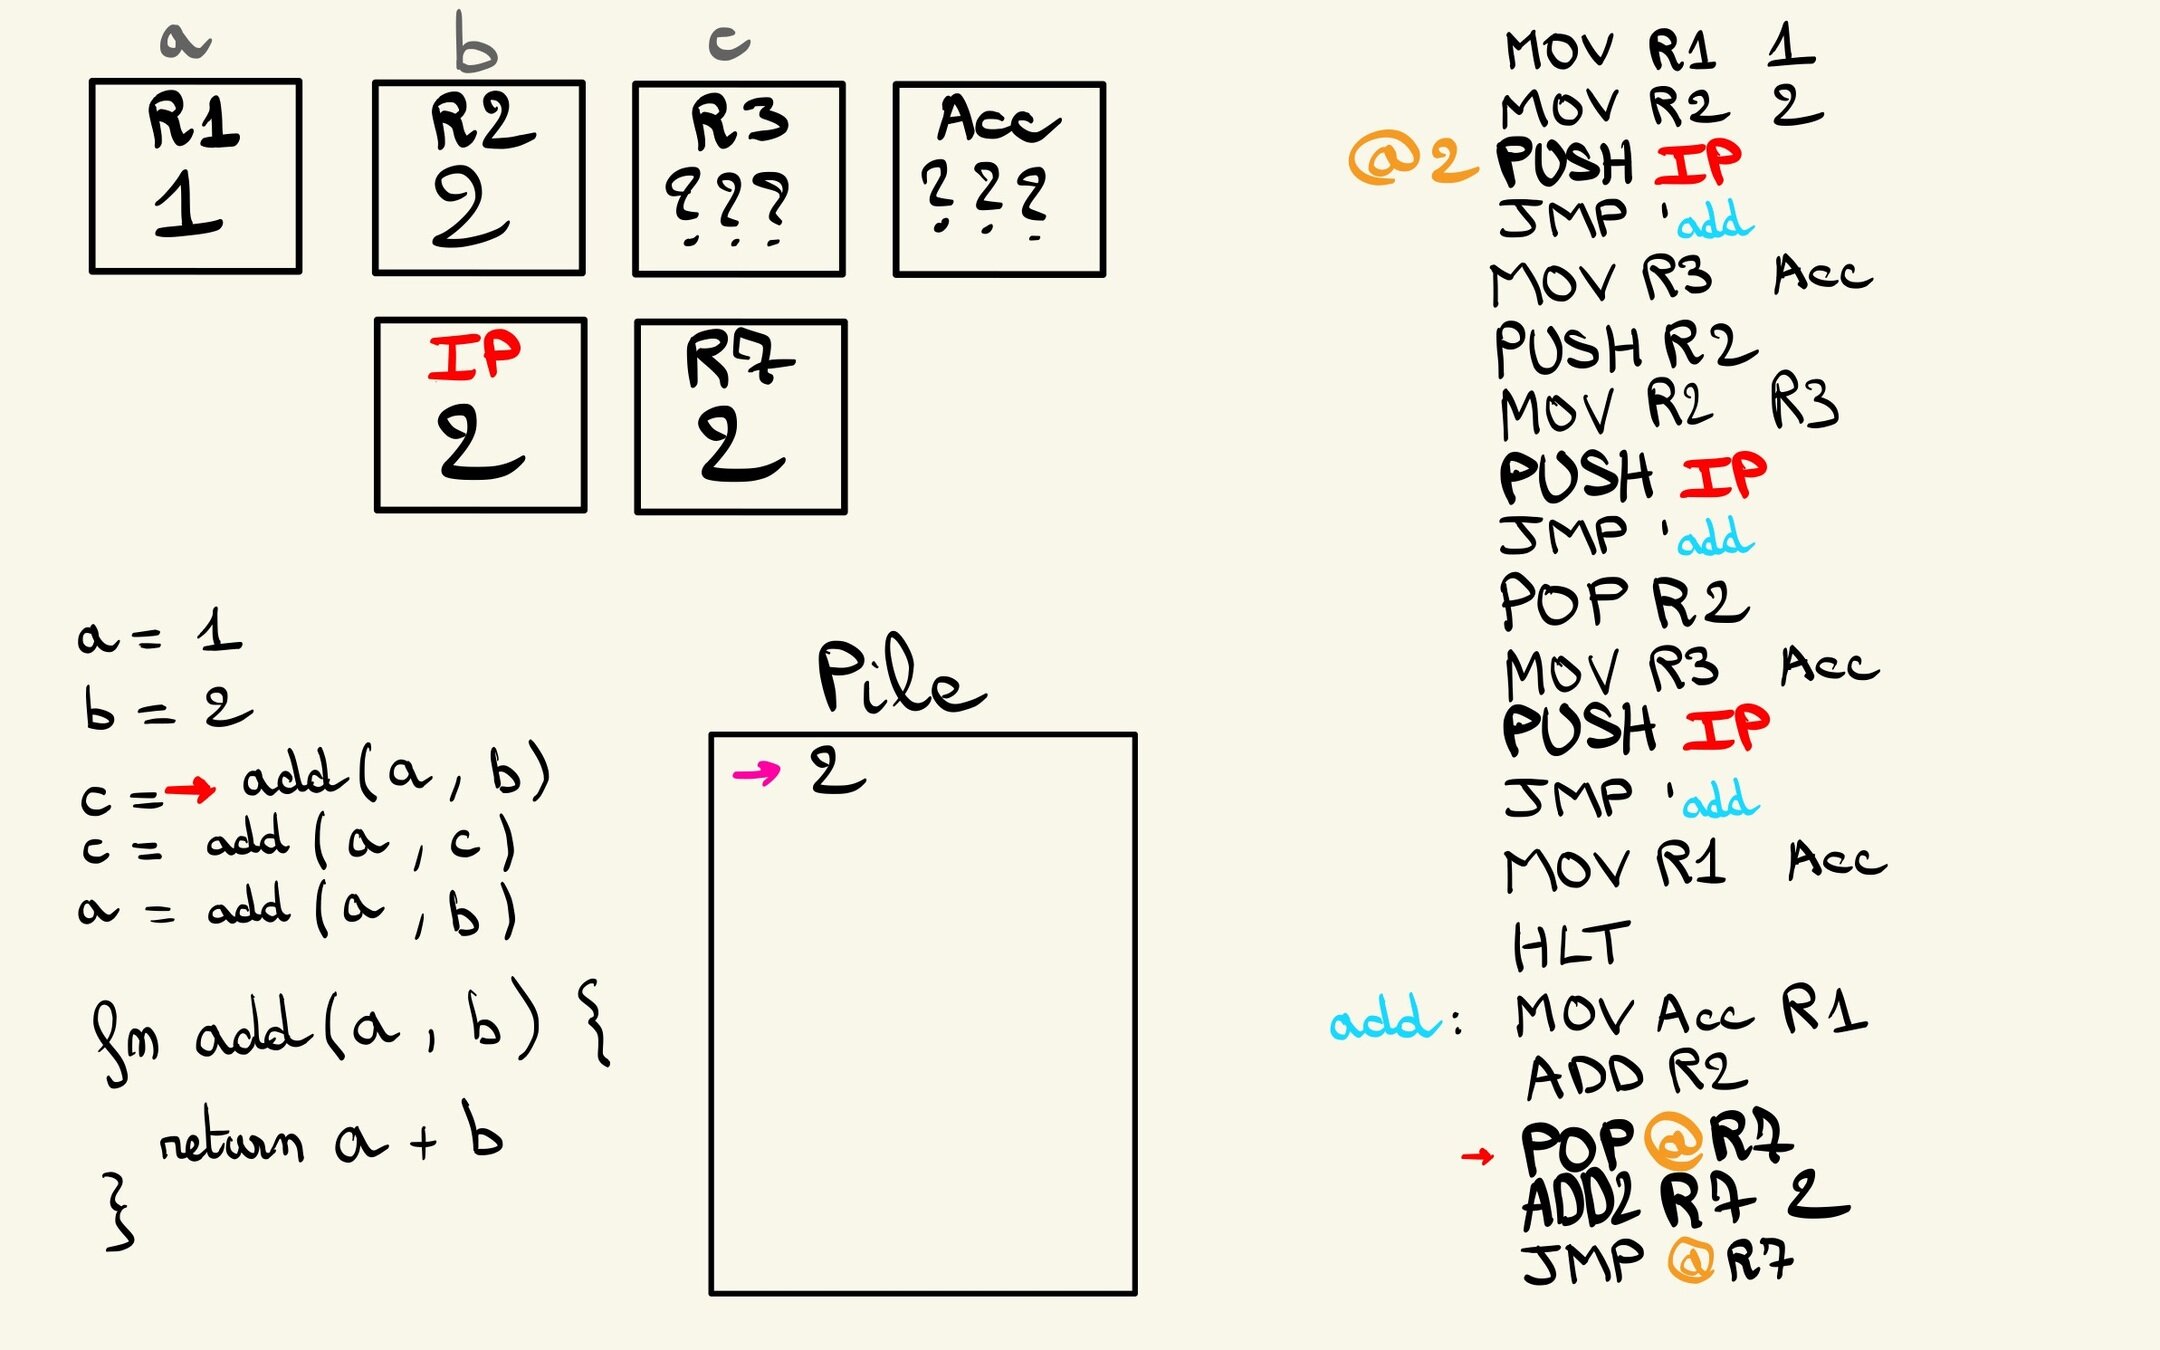 a b c
R1 R2 R3 Acc
1 2 ??? ???
IP R7
2 2
a = 1
b = 2
c = → add(a, b)
c = add(a, c)
a = add(a, b)
fn add(a, b) {
return a + b
}
Pile
→ 2
MOV R1 1
MOV R2 2
@2 PUSH IP
JMP 'add
MOV R3 Acc
PUSH R2
MOV R2 R3
PUSH IP
JMP 'add
POP R2
MOV R3 Acc
PUSH IP
JMP 'add
MOV R1 Acc
HLT
add: MOV Acc R1
ADD R2
→ POP @R7
ADD2 R7 2
JMP @R7